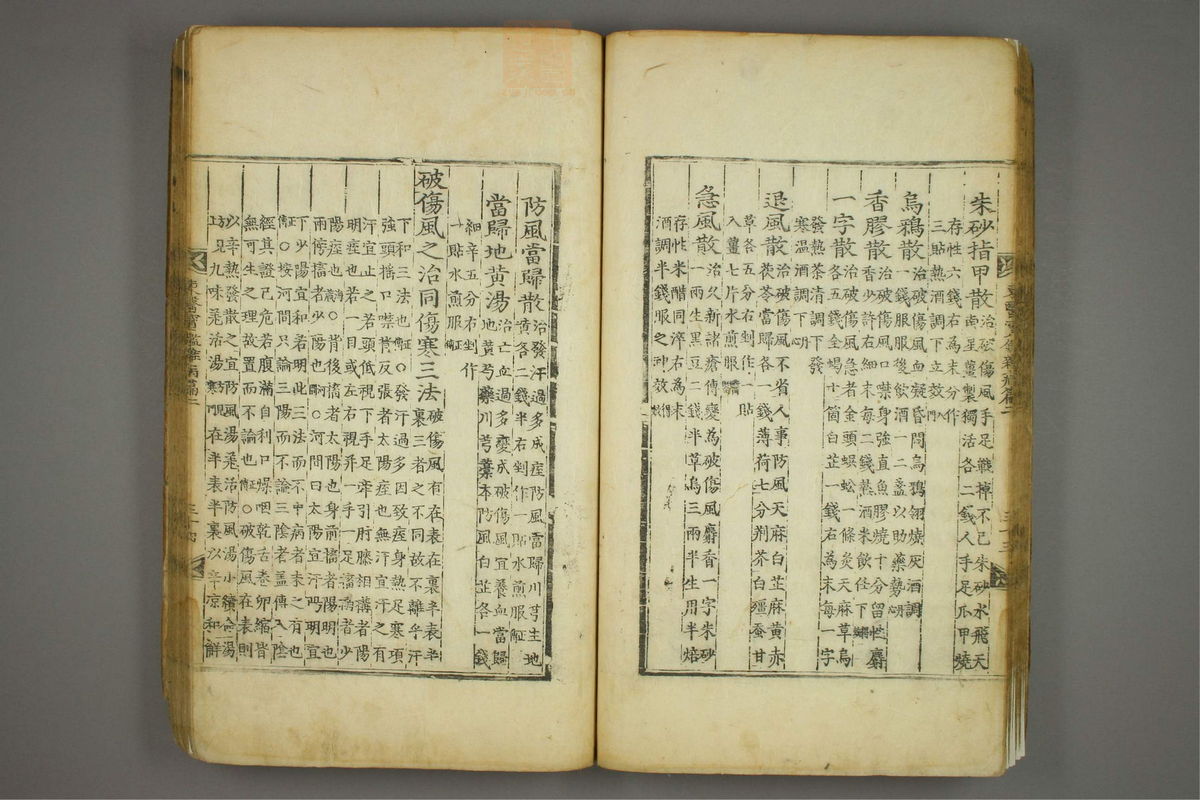 朱砂指甲散治破傷風手足戰掉不已朱砂水飛天
南星薑製獨活各二錢人手足爪甲燒
存性六錢右爲末分作
三貼熱酒調下立效
烏鴉散治破傷風血凝昏悶烏鴉翎燒灰酒調
一錢服服後飮酒一二盞以助藥勢
香膠散治破傷風口噤身強直魚膠燒十分留性麝
香少許右細末每二錢熱酒米飮任下
一字散治破傷風急者金頭蜈蚣一條炙天麻草烏
各五錢全蝎十箇白芷一錢右爲末每一字
發熱茶淸調下發
寒溫酒調下
退風散治破傷風不省人事防風天麻白芷麻黃赤
茯苓當歸各一錢薄荷七分荊芥白殭蚕甘
草各五分右剉作一貼
入薑七片水煎服
急風散治久新諸瘡傳變爲破傷風麝香一字朱砂
一兩生黑豆二錢半草烏三兩半生用半焙
存性米醋同淬右爲末
酒調半錢服之神效
防風當歸散治發汗過多成痓防風當歸川芎生地
黃各二錢半右剉作一貼水煎服
當歸地黃湯治亡血過多變成破傷風宜養血當歸
地黃芍藥川芎藁本防風白芷各一錢
細辛五分右剉作
一貼水煎服
破傷風之治同傷寒三法破傷風有在表在裏半表半
裏三者之不同故不離乎汗
下和三法也○發汗過多因致痓身熱足寒項
強頭搖口噤背反張者太陽痓也無汗宜汗之有
汗宜止之若頭低視下手足牽引肘膝相搆者陽
明痓也若一目或左右視幷一手一足搐搦者少
陽痓也○背後搐者太陽也身前搐者陽明也
兩傍搐者少陽也○河間曰太陽宜汗陽明宜
下少陽宜和若明此三法而不中病者未之有也
○按河間只論三陽而不論三陰者盖傳入陰
經其證已危若腹滿自利口燥咽乾舌卷卵縮皆
無可生之理故置而不論也○破傷風在表則
以辛熱發散之宜防風湯羌活防風湯小續命湯
九味羌活湯在半表半裏以辛凉和解